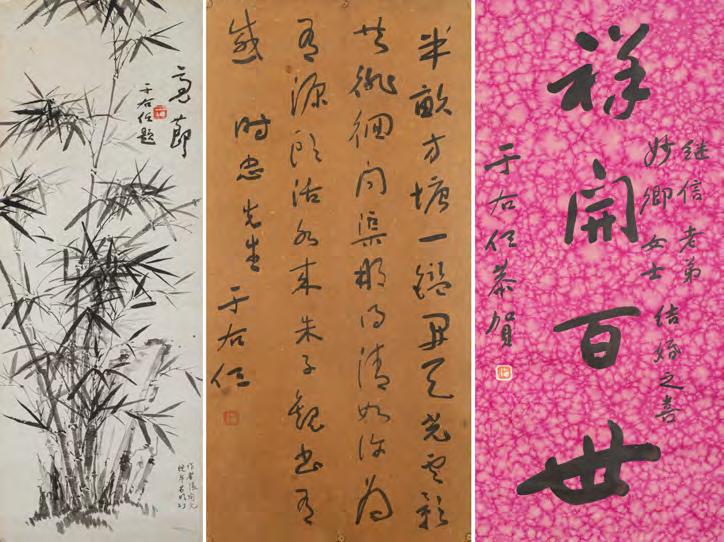 節
于右任題
半畝方塘一鑑開天光雲影
共徘徊問渠那得清如許為
有源頭活水來朱子觀書有
感 時忠先生 于右任
继信老弟
妙卿女士
结婚之喜
祥開百世
于右任恭賀